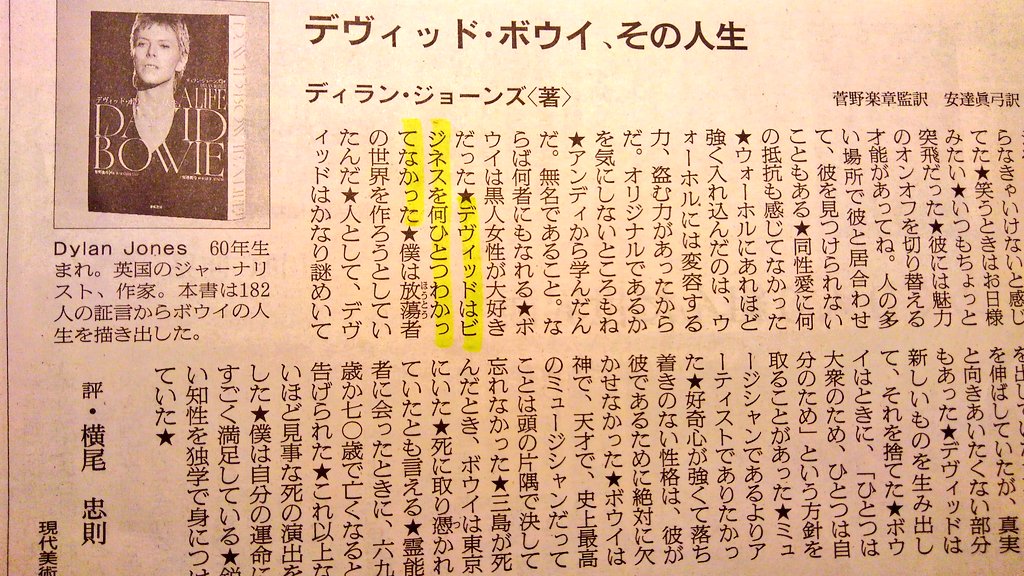 デヴィッド・ボウイ、その人生
ディラン・ジョーンズ〈著〉
菅野楽章監訳 安達眞弓訳
A LIFE
DAVID
BOWIE
Dylan Jones 60年生
まれ。英国のジャーナリ
スト、作家。本書は182
人の証言からボウイの人
生を描き出した。
らなきゃいけないと感じ
てた★笑うときはお日様
みたい★いつもちょっと
突飛だった★彼には魅力
のオンオフを切り替える
才能があってね。人の多
い場所で彼と居合わせ
て、彼を見つけられない
こともある★同性愛に何
の抵抗も感じてなかった
★ウォーホルにあれほど
強く入れ込んだのは、ウ
ォーホルには変容する
力、盗む力があったから
だ。オリジナルであるか
を気にしないところもね
★アンディから学んだん
だ。無名であること。な
らば何者にもなれる★ボ
ウイは黒人女性が大好き
だった★デヴィッドはビ
ジネスを何ひとつわかっ
てなかった★僕は放蕩者
ほうとう
の世界を作ろうとしてい
たんだ★人として、デヴ
ィッドはかなり謎めいて
を伸ばしていたが、真実
と向きあいたくない部分
もあった★デヴィッドは
新しいものを生み出し
て、それを捨てた★ボウ
イはときに、「ひとつは
大衆のため、ひとつは自
分のため」という方針を
取ることがあった★ミュ
ージシャンであるよりア
ーティストでありたかっ
た★好奇心が強くて落ち
着きのない性格は、彼が
彼であるために絶対に欠
かせなかった★ボウイは
神で、天才で、史上最高
のミュージシャンだって
ことは頭の片隅で決して
忘れなかった★三島が死
んだとき、ボウイは東京
にいた★死に取り憑かれ
つ
ていたとも言える★霊能
者に会ったときに、六九
歳か七〇歳で亡くなると
告げられた★これ以上な
いほど見事な死の演出を
した★僕は自分の運命に
すごく満足している★鋭
い知性を独学で身につけ
ていた★
評・横尾 忠則
現代美術